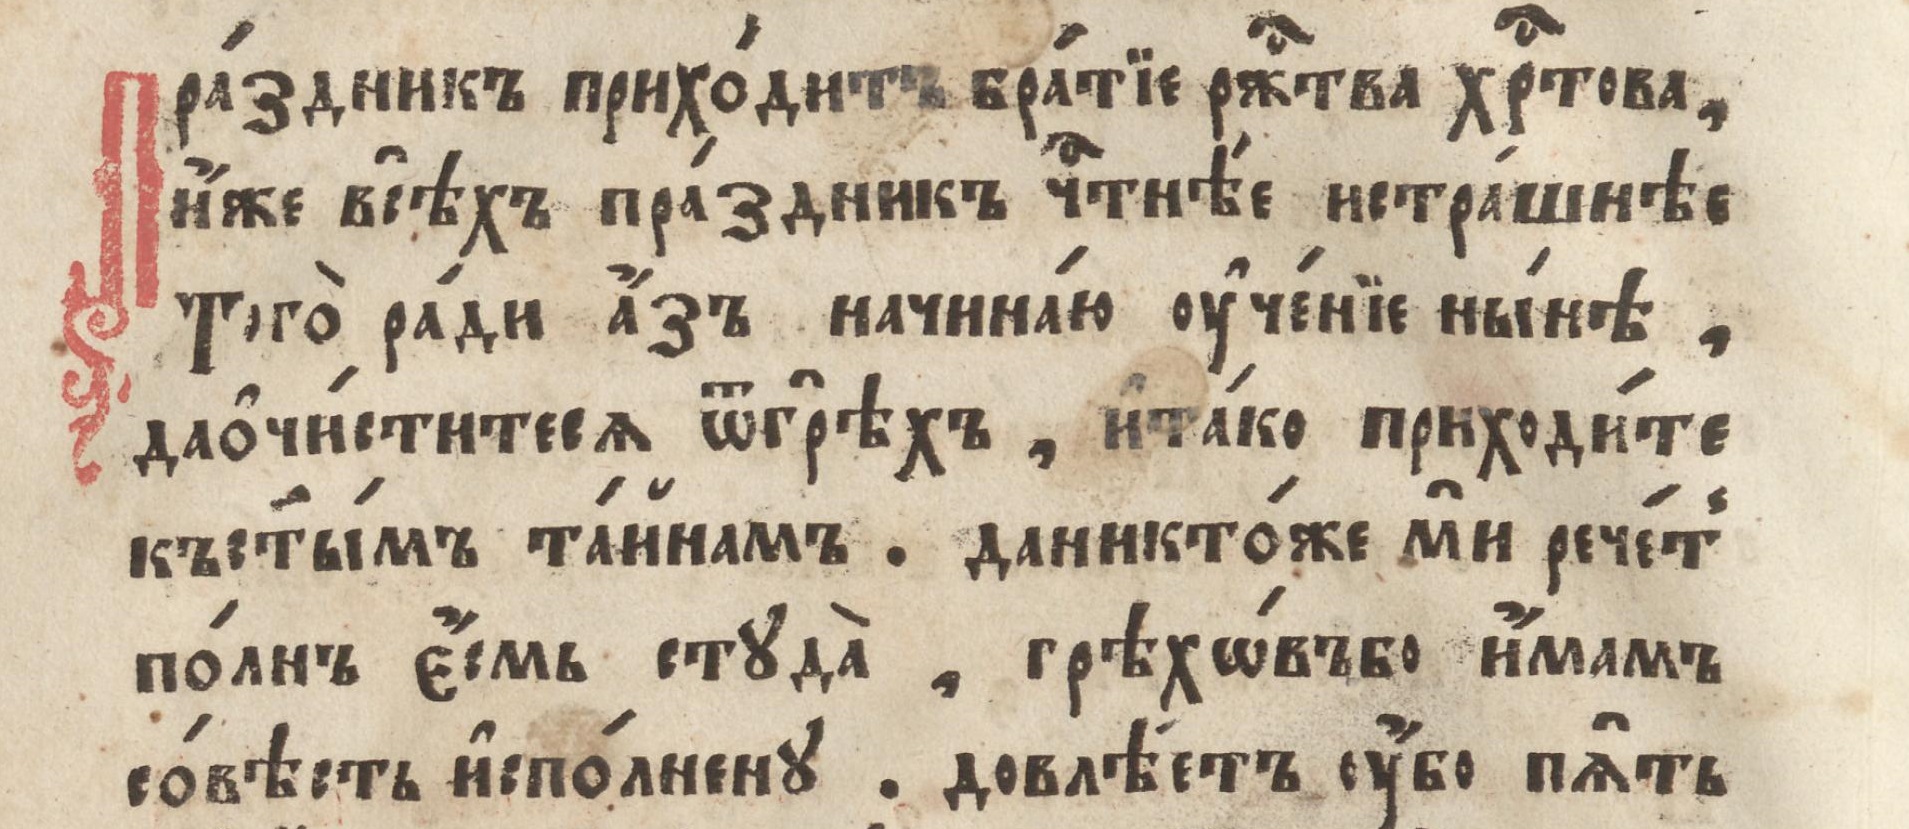 Пра́здникъ прихо́дитъ бра́тїе рж҃тва хр҃това,
и҆́же вс҆ѣхъ пра́здникъ ч҃тнѣ́е истра́шнѣе
Того̀ ра́ди а҆́зъ начина́ю оу҆че́нїе ны́нѣ ,
дао҆чи́ститесѧ ѿгр҆ѣхъ , и҆та́ко приходи́те
къст҃ы́мъ та́йнамъ . даникто́же м҆ни рече́т
по́лнъ є҆́смь стꙋда̀ , грѣхѡ́въбо и҆́мамъ
со́вѣсть и҆спо́лненꙋ . довлѣ́етъ оу҆́бо пѧ҆ть